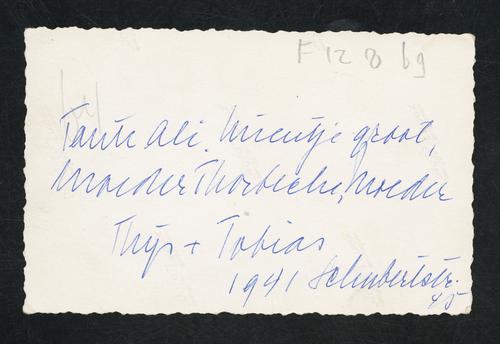 F 12 8 69
Tante Ali, Mientje groot,
Moeder Thorbecke, Moeder
Thijs + Tobias
1941 Schubertstr.
45